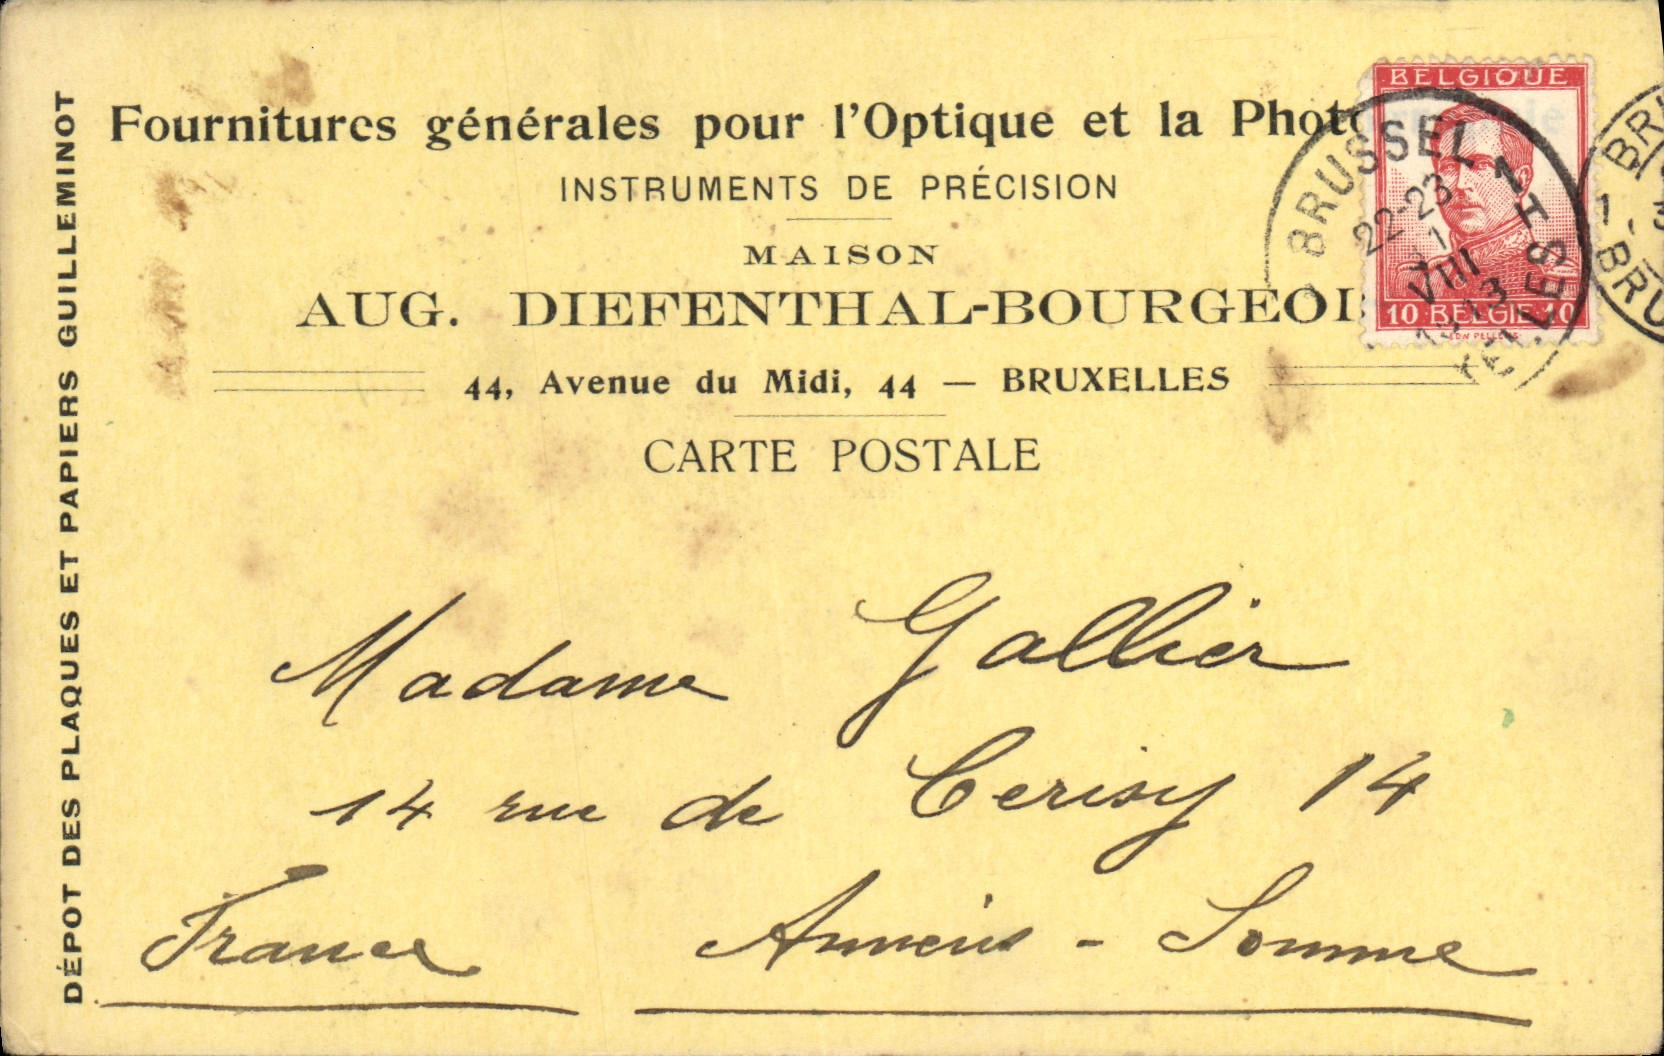 DÉPOT DES PLAQUES ET PAPIERS GUILLEMINOT
Fournitures générales pour l'Optique et la Phot
INSTRUMENTS DE PRÉCISION
MAISON
AUG. DIEFENTHAL-BOURGEOI
44, Avenue du Midi, 44 — BRUXELLES
CARTE POSTALE
BELGIQUE
10 BELGIE 10
BRUSSEL 1
22-23
VIII
Madame Gallier
14 rue de Cerisy 14
France Amiens - Somme